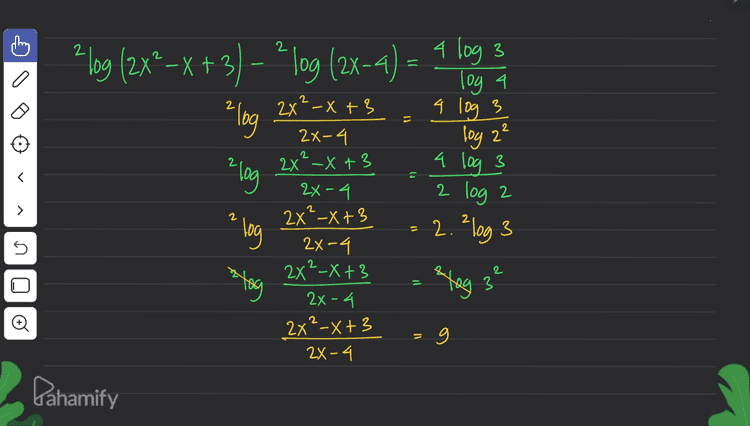 ²log (2x² - x + 3) - ²log (2x - 4) = 4 log 3 / log 4
²log (2x² - x + 3) / (2x - 4) = 4 log 3 / log 2²
²log (2x² - x + 3) / (2x - 4) = 4 log 3 / 2 log 2
²log (2x² - x + 3) / (2x - 4) = 2 . ²log 3
²log (2x² - x + 3) / (2x - 4) = ²log 3²
(2x² - x + 3) / (2x - 4) = 9
Pahamify